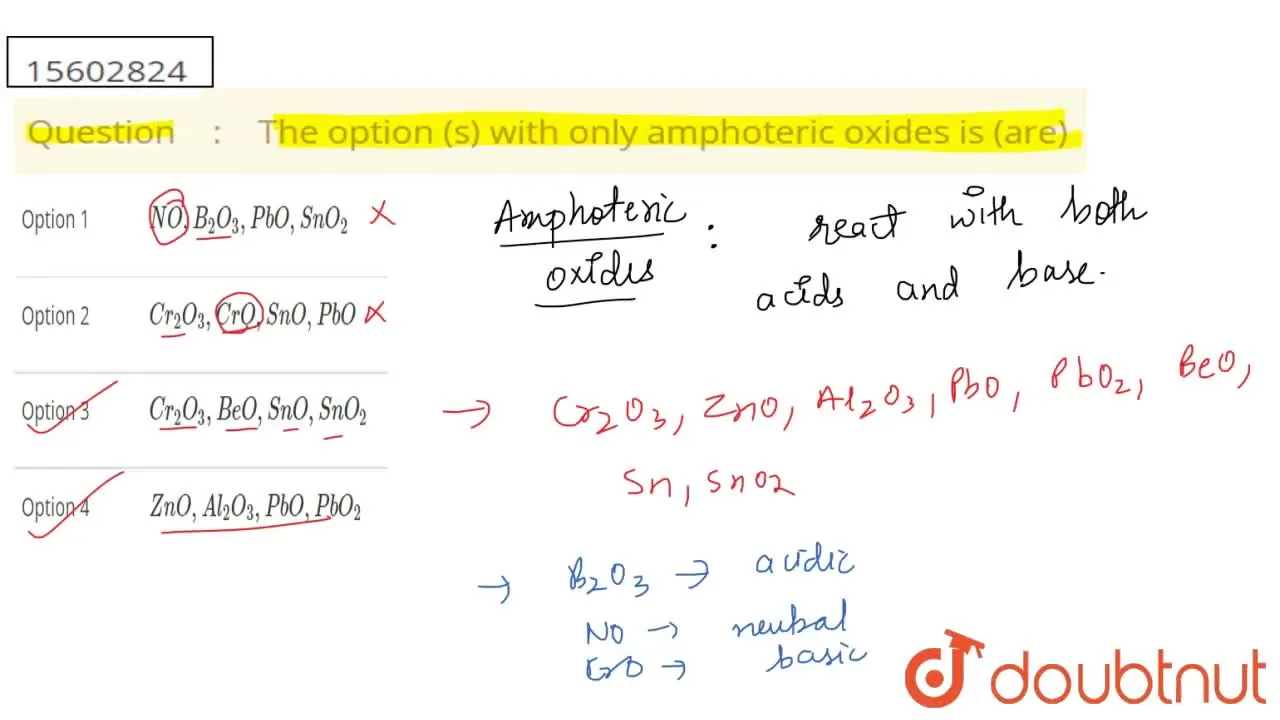 15602824
Question : The option (s) with only amphoteric oxides is (are)
Option 1 NO, B₂O₃, PbO, SnO₂ X
Option 2 Cr₂O₃, CrO, SnO, PbO X
Option 3 Cr₂O₃, BeO, SnO, SnO₂
Option 4 ZnO, Al₂O₃, PbO, PbO₂
Amphoteric oxides : react with both
acids and base.
→ Cr₂O₃, ZnO, Al₂O₃, PbO, PbO₂, BeO,
Sn, SnO₂
→ B₂O₃ → acidic
NO → neutral
CrO → basic
doubtnut